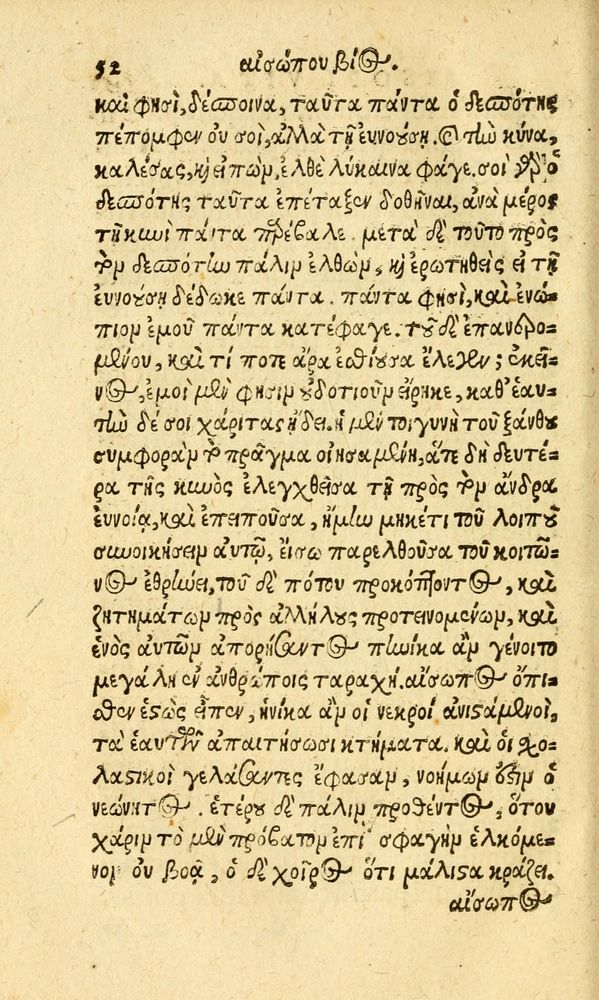 52 αἰσώπου βίος.
καὶ φησὶ, δέσποινα, ταῦτα πάντα ὁ δεσπότης
πέπομφεν οὐ σοὶ, ἀλλὰ τῇ εὐνούσῃ. καὶ τὴν κύνα,
καλέσας, καὶ εἰπὼν, ἐλθὲ λύκαινα φάγε. σοὶ γὰρ ὁ
δεσπότης ταῦτα ἐπέταξεν δοθῆναι, ἀνὰ μέρος
τῇ κυνὶ πάντα προέβαλε. μετὰ δὲ τοῦτο πρὸς
τὸν δεσπότην πάλιν ἐλθὼν, καὶ ἐρωτηθεὶς εἰ τῇ
εὐνούσῃ δέδωκε πάντα. πάντα φησὶ, καὶ ἐνώ-
πιον ἐμοῦ πάντα κατέφαγε. τοῦ δὲ ἐπανερο-
μένου, καὶ τί ποτε ἄρα ἐσθίουσα ἔλεγεν; ἐκεῖ-
νος, ἐμοὶ μὲν φησὶν οὐδοτιοῦν εἴρηκε, καθ' ἑαυ-
τὴν δέ σοι χάριτας ᾔδει. ἡ μέν τοι γυνὴ τοῦ ξάνθου
συμφορὰν τὸ πρᾶγμα οἰησαμένη, ἅτε δὴ δευτέ-
ρα τῆς κυνὸς ἐλεγχθεῖσα τῇ πρὸς τὸν ἄνδρα
εὐνοίᾳ, καὶ ἐπειποῦσα, ἦ μὴν μηκέτι τοῦ λοιποῦ
συνοικήσειν αὐτῷ, εἴσω παρελθοῦσα τοῦ κοιτῶ-
νος ἐθρήνει, τοῦ δὲ πότου προκόπτοντος, καὶ
ζητημάτων πρὸς ἀλλήλους προτεινομένων, καὶ
ἑνὸς αὐτῶν ἀπορήσαντος πηνίκα ἂν γένοιτο
μεγάλη ἐν ἀνθρώποις ταραχή. αἴσωπος ὄπι-
σθεν ἑστὼς εἶπεν, ἡνίκα ἂν οἱ νεκροὶ ἀνιστάμενοι,
τὰ ἑαυτῶν ἀπαιτήσωσι κτήματα. καὶ οἱ σχο-
λαστικοὶ γελάσαντες ἔφασαν, νοήμων ἐστὶν ὁ
νεώνητος. ἑτέρου δὲ πάλιν προθέντος, ὅτου
χάριν τὸ μὲν πρόβατον ἐπὶ σφαγὴν ἑλκόμε-
νον οὐ βοᾷ, ὁ δὲ χοῖρος ὅτι μάλιστα κράζει.
αἴσωπος